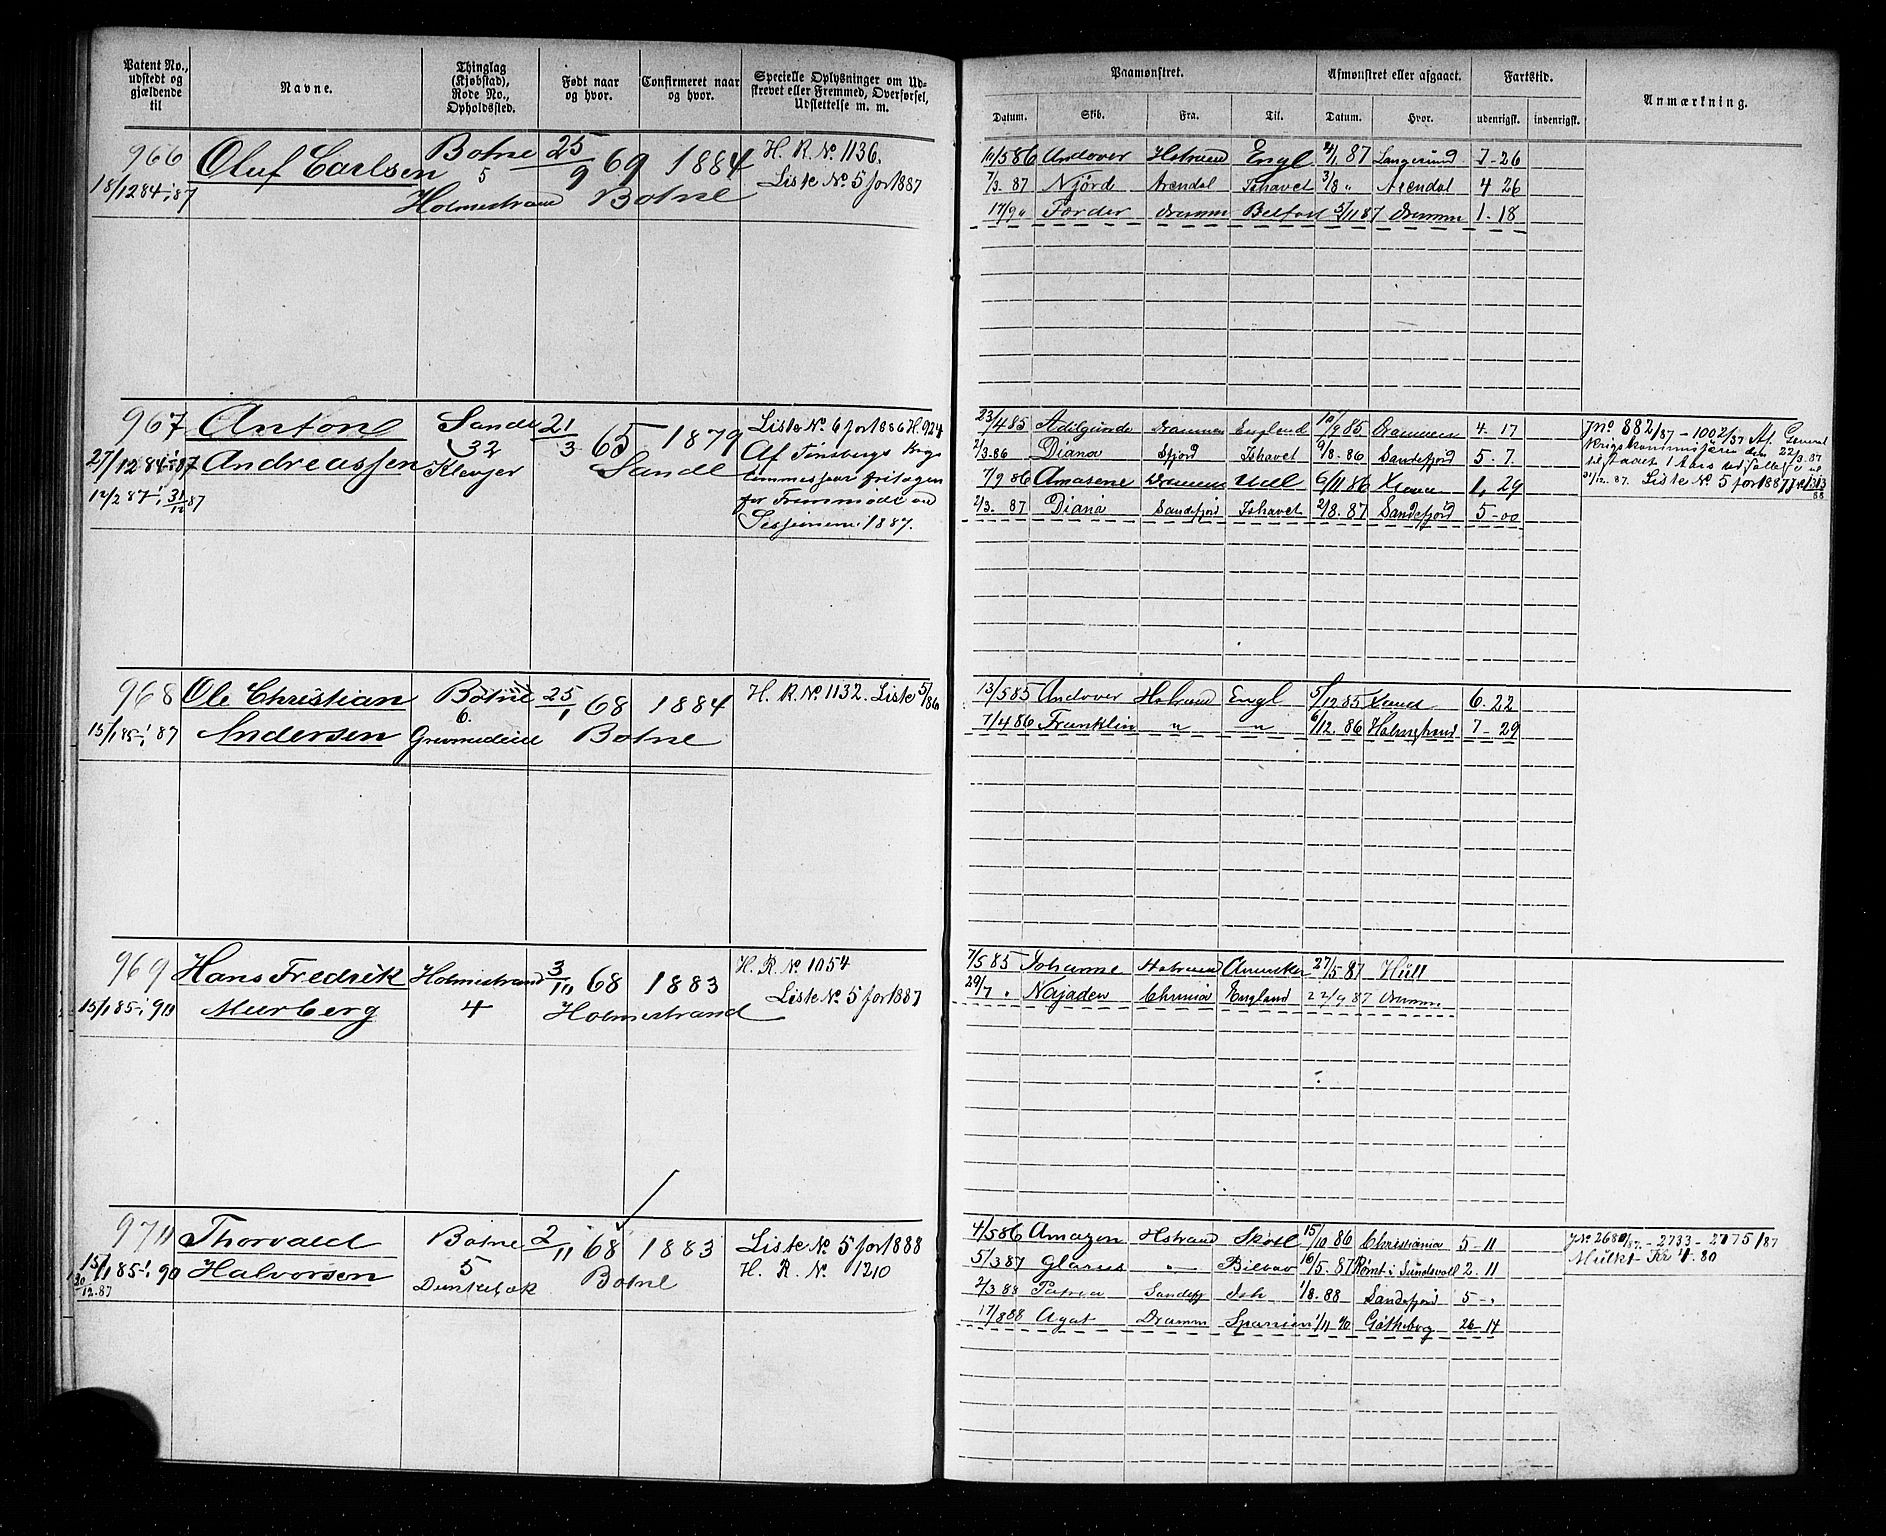 Patent No., udstedt og gjældende til
Navne.
Thinglag (Kjøbstad), Rode No., Opholdssted.
Født naar og hvor.
Confirmeret naar og hvor.
Specielle Oplysninger om Udskrevet eller Fremmed, Overførsel, Udslettelse m. m.
Paamønstret.
Afmønstret eller afgaaet.
Fartstid.
Anmærkning.
Datum. Skib. Fra. Til. Datum. Hvor. udenrigsk. indenrigsk.
966 Oluf Carlsen Botne 25/9 69 1884 H. R. No. 1136.
18/12 84 - 1/1 87 5 Holmestrand Botne Liste No. 5 for 1887
10/5 86 Andover Hstrand Engl 24/1 87 Langesund 7-26
7/3 87 Njørd Arendal Ishavet 3/8 " Arendal 4 26
17/9 " Færder Dramm Belfast 5/11 87 Dramm 1-18
967 Anton Sande 21/3 65 1879 Liste No. 6 for 1886 H. 924
27/12 84 - 1/1 87 Andreassen 32 Klevjer Sande Af Tønsbergs Krigs
12/2 87 - 31/12 87 commissær fritagen
for Fremmøde ved
Sessionen 1887.
23/4 85 Adelgunde Drammen England 10/9 85 Drammen 4.17
2/3 86 Diana Sfjord Ishavet 9/8.86 Sandefjord 5.7.
7/9 86 Amasene Drammen Hull 6/11 86 Xania 1.29
2/3. 87 Diana Sandefjord Ishavet 2/8.87 Sandefjord 5-00
JNo 882/87 - 1002/87 Af General
Krigskommissæren den 22/3 87
31/12. 87. Liste No 5 for 1887
968 Ole Christian Botne 25/1 68 1884 H. R. No. 1132. Liste 5/86
15/1 85 - 1/1 87 Andersen 6. Botne
13/5 85 Andover Hstrand Engl 5/12 85 Xsand 6.22
7/4 86 Franklin " " 6/12.86 Holmestrand 7-29
969 Hans Fredrik Holmestrand 3/10 68 1883 H. R. No. 1054
15/1 85 - 1/1 90 Meerberg 4 Holmestrand Liste No. 5 for 1887
7/5 85 Johanne Hstrand Amerika 27/5 87 Hull
29/7 " Najaden Chrania England 22/9 87 Dramm
970 Thorvald Botne 2/11 68 1883 Liste No. 5 for 1888
15/1 85 - 1/1 90 Halvorsen 5 Botne H. R. No. 1210
30/12.87 Dunkebæk
4/5 86 Amazon Hstrand Skotl 15/10 86 Christiania 5-11
5/3 87 Glarus - Bilbao 16/5.87 Rømt i Sundsvall 2.11
2/3 88 Patria Sandefj Ish 1/8.88 Sandefjord 5-"
17/8 88 Agat Dramm Spanien 1/11 90 Gøtheborg 26-14
JNo 2680/87 - 2733 - 2775/87
Mulkt Kr 4.80